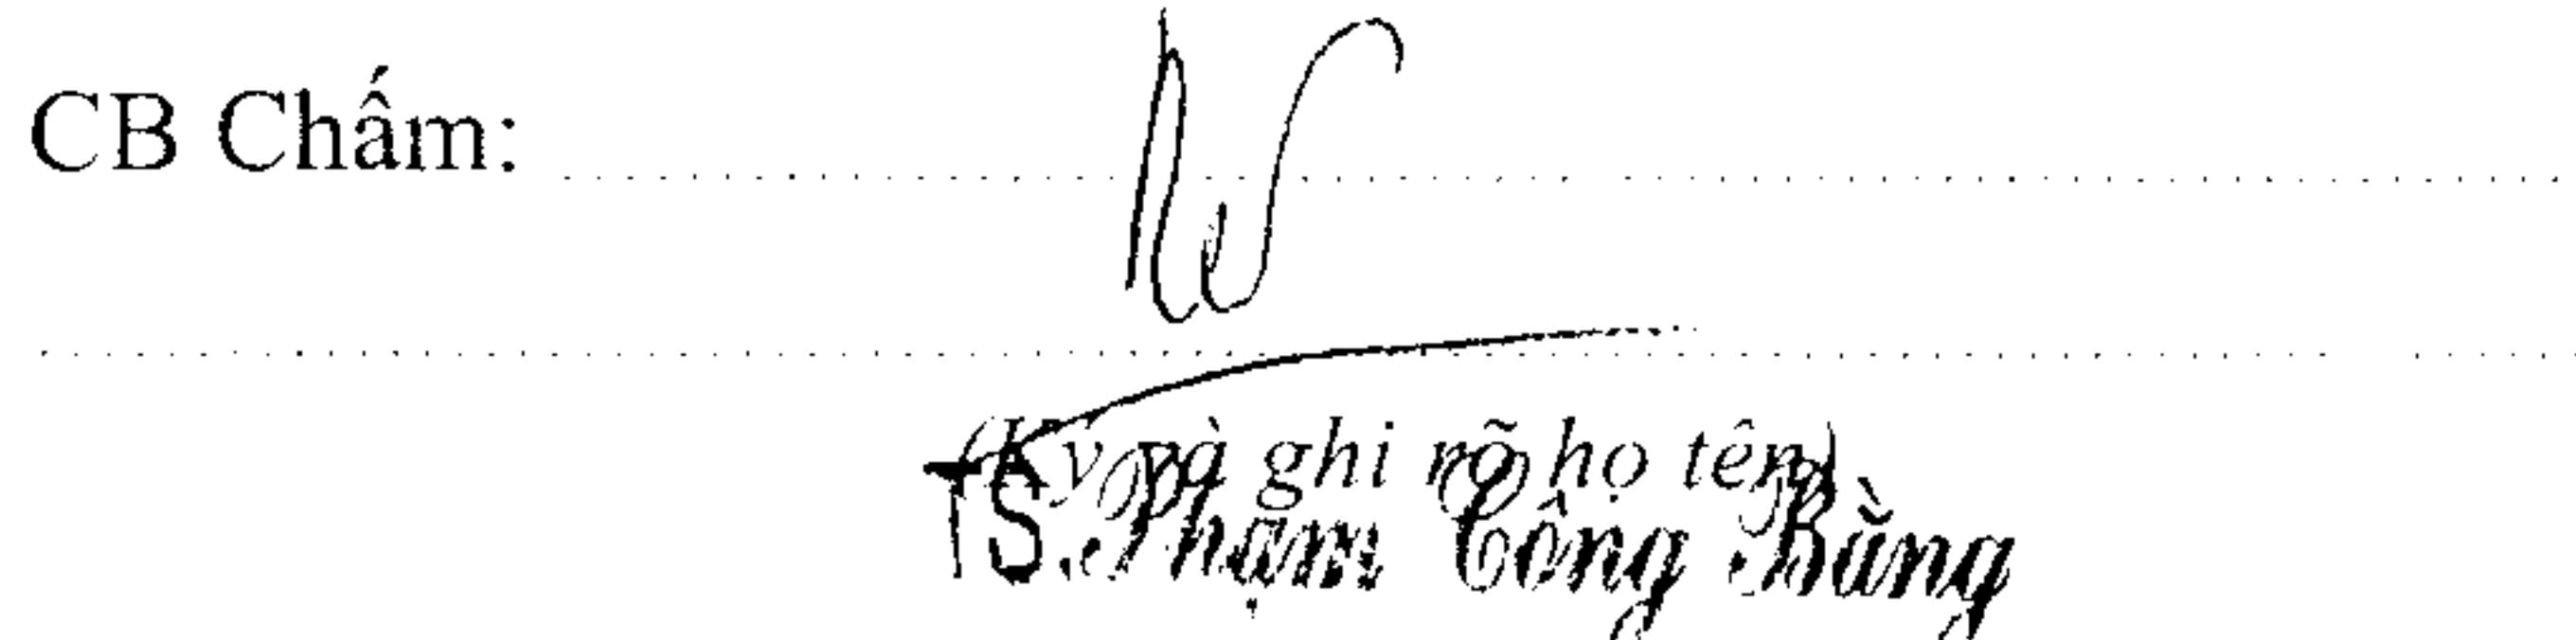 CB Chấm:
(Ký và ghi rõ họ tên)
TS. Phạm Công Bằng